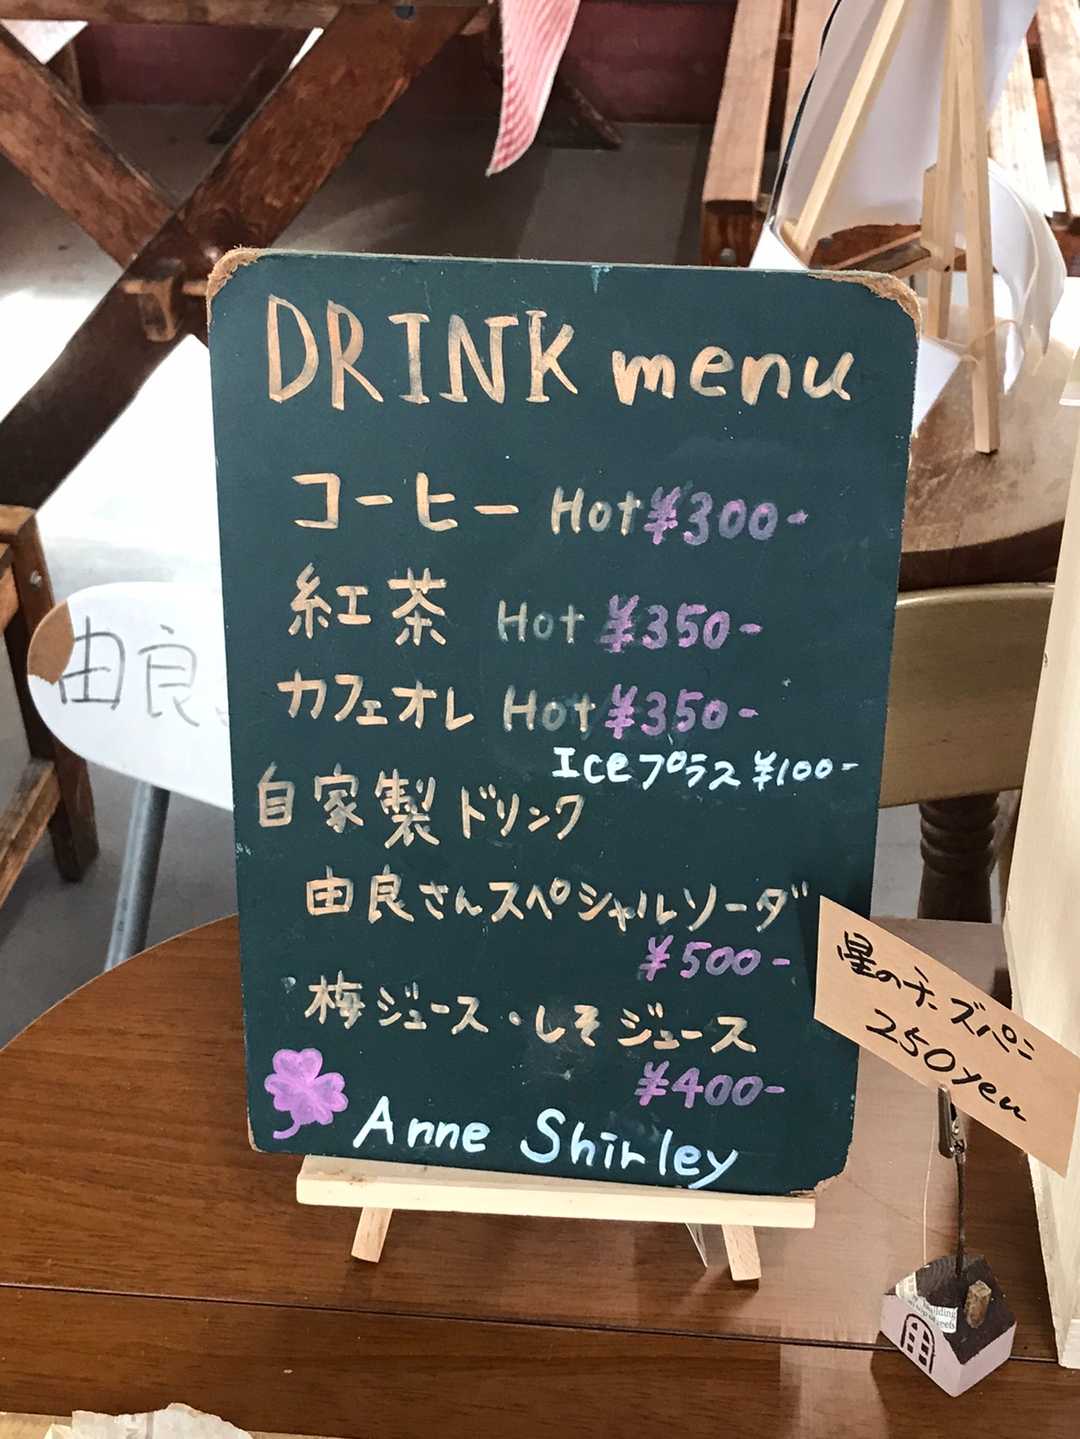 DRINK menu
コーヒー Hot ¥300-
紅茶 Hot ¥350-
カフェオレ Hot ¥350-
Ice プラス ¥100-
自家製ドリンク
由良さんスペシャルソーダ
¥500-
梅ジュース・しそジュース
¥400-
Anne Shirley
星のチーズパン
250yen
由良